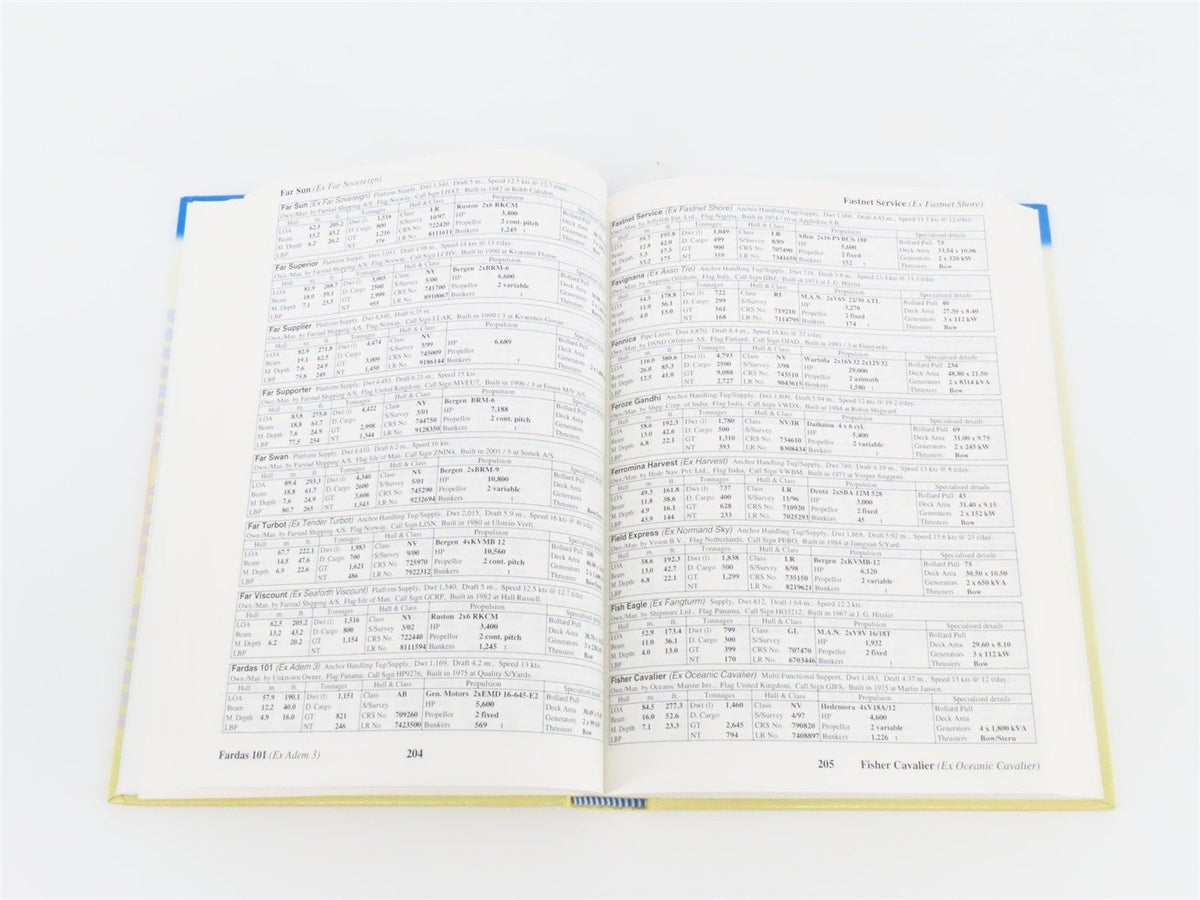 Far Sun (Ex Far Sovereign)
Far Sun (Ex Far Sovereign) Platform Supply, Dwt 1,540, Draft 5 m., Speed 12.5 kts @ 12.7 t/day.
Own./Man. by Farstad Shipping A/S, Flag Norway, Call Sign LHAT. Built in 1982 at Robb Caledon.
Hull m. ft. Tonnages Hull & Class Propulsion
LOA 62.5 205.2 Dwt (l) 1,516 Class LR Ruston 2x6 RKCM Bollard Pull
Beam 13.2 43.2 D. Cargo 800 S/Survey 10/97 HP 3,400 Deck Area
M. Depth 6.2 20.2 GT 1,216 CRS No. 722420 Propellor 2 cont. pitch Generators
LBP NT 579 LR No. 8111611 Bunkers 1,245 t Thrusters
Far Superior Platform Supply, Draft 4.98 m., Speed 14 kts @ 15 t/day.
Own./Man. by Farstad Shipping A/S, Flag Norway, Call Sign LCHV. Built in 1990 at Kvaerner Floroe.
Hull m. ft. Tonnages Hull & Class Propulsion
LOA 81.9 268.7 Dwt (l) 3,005 Class NV Bergen 2xBRM-6 Bollard Pull
Beam 18.0 59.1 D. Cargo 2500 S/Survey 5/00 HP 6,600 Deck Area
M. Depth 7.1 23.3 GT 2,999 CRS No. 741700 Propellor 2 variable Generators
LBP NT 955 LR No. 8910067 Bunkers t Thrusters
Far Supplier Platform Supply, Dwt 4,546, Draft 6.35 m.
Own./Man. by Farstad Shipping A/S, Flag Norway, Call Sign LLAK. Built in 1999 / 3 at Kvaerner-Govan.
Hull m. ft. Tonnages Hull & Class Propulsion
LOA 82.9 271.8 Dwt (l) 4,474 Class NV Bollard Pull
Beam 19.1 62.5 D. Cargo S/Survey 3/99 HP 6,689 Deck Area
M. Depth 7.6 24.9 GT 3,009 CRS No. 745009 Propellor Generators
LBP 75.8 249 NT 1,450 LR No. 9186144 Bunkers t Thrusters
Far Supporter Platform Supply, Dwt 4,493, Draft 6.21 m., Speed 15 kts.
Own./Man. by Farstad Shipping A/S, Flag United Kingdom, Call Sign MVEU7. Built in 1996 / 3 at Fosen M/V A/S.
Hull m. ft. Tonnages Hull & Class Propulsion
LOA 83.8 275.0 Dwt (l) 4,422 Class NV Bergen BRM-6 Bollard Pull
Beam 18.8 61.7 D. Cargo S/Survey 3/01 HP 7,188 Deck Area
M. Depth 7.6 24.9 GT 2,998 CRS No. 744750 Propellor 2 cont. pitch Generators
LBP 77.5 254 NT 1,344 LR No. 9128350 Bunkers t Thrusters
Far Swan Platform Supply, Dwt 4,410, Draft 6.2 m., Speed 16 kts.
Own./Man. by Farstad Shipping A/S, Flag Isle of Man, Call Sign ZNIN4. Built in 2001 / 5 at Simek A/S.
Hull m. ft. Tonnages Hull & Class Propulsion
LOA 89.4 293.3 Dwt (l) 4,340 Class NV Bergen 2xBRM-9 Bollard Pull
Beam 18.8 61.7 D. Cargo 2600 S/Survey 5/01 HP 10,800 Deck Area
M. Depth 7.6 24.9 GT 3,606 CRS No. 745290 Propellor 2 variable Generators
LBP 80.7 265 NT 1,543 LR No. 9232694 Bunkers t Thrusters
Far Turbot (Ex Tender Turbot) Anchor Handling Tug/Supply, Dwt 2,015, Draft 5.9 m., Speed 16 kts @ 40 t/day.
Own./Man. by Farstad Shipping A/S, Flag Norway, Call Sign LISN. Built in 1980 at Ulstein Verft.
Hull m. ft. Tonnages Hull & Class Propulsion
LOA 67.7 222.1 Dwt (l) 1,983 Class NV Bergen 4xKVMB 12 Bollard Pull
Beam 14.5 47.6 D. Cargo 700 S/Survey 9/00 HP 10,560 Deck Area
M. Depth 6.9 22.6 GT 1,621 CRS No. 725970 Propellor 2 cont. pitch Generators
LBP NT 486 LR No. 7922312 Bunkers t Thrusters
Far Viscount (Ex Seaforth Viscount) Platform Supply, Dwt 1,540, Draft 5 m., Speed 12.5 kts @ 12.7 t/day.
Own./Man. by Farstad Shipping A/S, Flag Isle of Man, Call Sign GCRP. Built in 1982 at Hall Russell.
Hull m. ft. Tonnages Hull & Class Propulsion Specialised
LOA 62.5 205.2 Dwt (l) 1,516 Class NV Ruston 2x6 RKCM Bollard Pull
Beam 13.2 43.2 D. Cargo 800 S/Survey 3/02 HP 3,400 Deck Area
M. Depth 6.2 20.2 GT 1,154 CRS No. 722440 Propellor 2 cont. pitch Generators
LBP NT LR No. 8111594 Bunkers 1,245 t Thrusters Bow
Fardas 101 (Ex Adem 3) Anchor Handling Tug/Supply, Dwt 1,169, Draft 4.2 m., Speed 13 kts.
Own./Man. by Unknown Owner, Flag Panama, Call Sign HP9276, Built in 1975 at Quality S/Yards.
Hull m. ft. Tonnages Hull & Class Propulsion Specialised
LOA 57.9 190.1 Dwt (l) 1,151 Class AB Gen. Motors 2xEMD 16-645-E2 Bollard Pull
Beam 12.2 40.0 D. Cargo S/Survey HP 5,600 Deck Area
M. Depth 4.9 16.0 GT 821 CRS No. 709260 Propellor 2 fixed Generators
LBP NT 246 LR No. 7423500 Bunkers 569 t Thrusters Bow
Fardas 101 (Ex Adem 3) 204
Fastnet Service (Ex Fastnet Shore)
Fastnet Service (Ex Fastnet Shore) Anchor Handling Tug/Supply, Dwt 1,066, Draft 4.45 m., Speed 11.5 kts @ 12 t/day.
Own./Man. by Jellyfish Ent. Ltd., Flag Nigeria, Built in 1974 / 10 at Appledore S.B.
Hull m. ft. Tonnages Hull & Class Propulsion Specialised details
LOA 59.7 195.8 Dwt (l) 1,049 Class LR Allen 2x18 PVBCS-18F Bollard Pull 73
Beam 12.8 42.0 D. Cargo 499 S/Survey 8/89 HP 5,600 Deck Area 33.54 x 10.06
M. Depth 5.3 17.5 GT 900 CRS No. 707490 Propellor 2 fixed Generators 2 x 320 kW
LBP 53.2 175 NT 359 LR No. 7341659 Bunkers 152 t Thrusters Bow
Favignana (Ex Asso Tre) Anchor Handling Tug/Supply, Dwt 734, Draft 3.8 m., Speed 13.4 kts @ 11.1 t/day.
Own./Man. by Augusta Offshore, Flag Italy, Call Sign IBBZ. Built in 1971 at J. G. Hitzler.
Hull m. ft. Tonnages Hull & Class Propulsion Specialised details
LOA 54.5 178.8 Dwt (l) 722 Class RI M.A.N. 2xV6V 22/30 ATL Bollard Pull 40
Beam 11.0 36.1 D. Cargo 299 S/Survey HP 3,270 Deck Area 27.50 x 8.40
M. Depth 4.0 13.0 GT 561 CRS No. 719210 Propellor 2 fixed Generators 3 x 112 kW
LBP NT 168 LR No. 7114795 Bunkers 174 t Thrusters Bow
Fennica Pipe Layer, Dwt 4,870, Draft 8.4 m., Speed 16 kts @ 32 t/day.
Own./Man. by DSND Offshore AS, Flag Finland, Call Sign OJAD. Built in 1993 / 3 at Finnyards.
Hull m. ft. Tonnages Hull & Class Propulsion Specialised details
LOA 116.0 380.6 Dwt (l) 4,793 Class NV Wartsila 2x16V32 2x12V32 Bollard Pull 234
Beam 26.0 85.3 D. Cargo 2500 S/Survey 3/98 HP 29,000 Deck Area 48.80 x 21.50
M. Depth 12.5 41.0 GT 9,088 CRS No. 743510 Propellor 2 azimuth Generators 2 x 8314 kVA
LBP NT 2,727 LR No. 9043615 Bunkers 1,580 t Thrusters Bow
Feroze Gandhi Anchor Handling Tug/Supply, Dwt 1,809, Draft 5.94 m., Speed 12 kts @ 19.2 t/day.
Own./Man. by Shpg. Corp. of India, Flag India, Call Sign VWDX. Built in 1984 at Robin Shipyard.
Hull m. ft. Tonnages Hull & Class Propulsion Specialised details
LOA 58.6 192.3 Dwt (l) 1,780 Class NV/IR Daihatsu 4 x 6 cyl. Bollard Pull 69
Beam 13.0 42.6 D. Cargo 500 S/Survey HP 5,400 Deck Area 31.00 x 9.75
M. Depth 6.8 22.1 GT 1,310 CRS No. 734610 Propellor 2 variable Generators 2 x 245 kW
LBP NT 393 LR No. 8308434 Bunkers t Thrusters Bow
Ferromina Harvest (Ex Harvest) Anchor Handling Tug/Supply, Dwt 749, Draft 4.19 m., Speed 13 kts @ 8 t/day.
Own./Man. by Hede Nav. Pvt. Ltd., Flag India, Call Sign VWBM. Built in 1971 at Vosper Singpore.
Hull m. ft. Tonnages Hull & Class Propulsion Specialised details
LOA 49.3 161.8 Dwt (l) 737 Class LR Deutz 2xSBA 12M 528 Bollard Pull 43
Beam 11.8 38.6 D. Cargo 400 S/Survey 11/96 HP 3,000 Deck Area 31.40 x 9.15
M. Depth 4.9 16.1 GT 628 CRS No. 710920 Propellor 2 fixed Generators 2 x 152 kW
LBP 43.9 144 NT 233 LR No. 7025293 Bunkers 45 t Thrusters Bow
Field Express (Ex Normand Sky) Anchor Handling Tug/Supply, Dwt 1,868, Draft 5.92 m., Speed 15.6 kts @ 23 t/day.
Own./Man. by Vroon B.V., Flag Netherlands, Call Sign PEBO. Built in 1984 at Jiangnan S/Yard.
Hull m. ft. Tonnages Hull & Class Propulsion Specialised details
LOA 58.6 192.3 Dwt (l) 1,838 Class LR Bergen 2xKVMB-12 Bollard Pull 75
Beam 13.0 42.7 D. Cargo 500 S/Survey 8/98 HP 6,120 Deck Area 30.50 x 10.50
M. Depth 6.8 22.1 GT 1,299 CRS No. 735150 Propellor 2 variable Generators 2 x 650 kVA
LBP NT LR No. 8219621 Bunkers t Thrusters Bow
Fish Eagle (Ex Fangturm) Supply, Dwt 812, Draft 1.64 m., Speed 12.2 kts.
Own./Man. by Shipmarc Ltd., Flag Panama, Call Sign HO3212, Built in 1967 at J. G. Hitzler.
Hull m. ft. Tonnages Hull & Class Propulsion Specialised details
LOA 52.9 173.4 Dwt (l) 799 Class GL M.A.N. 2xV8V 16/18T Bollard Pull
Beam 11.0 36.1 D. Cargo 300 S/Survey HP 1,932 Deck Area 29.60 x 8.10
M. Depth 4.0 13.0 GT 399 CRS No. 707470 Propellor 2 fixed Generators 3 x 112 kW
LBP NT 170 LR No. 6703446 Bunkers t Thrusters Bow
Fisher Cavalier (Ex Oceanic Cavalier) Multi-Functional Support, Dwt 1,483, Draft 4.37 m., Speed 13 kts @ 12 t/day.
Own./Man. by Oceanic Marine Inv., Flag United Kingdom, Call Sign GIFS. Built in 1975 at Martin Jansen.
Hull m. ft. Tonnages Hull & Class Propulsion Specialised details
LOA 84.5 277.3 Dwt (l) 1,460 Class NV Hedemora 4xV18A/12 Bollard Pull
Beam 16.0 52.6 D. Cargo S/Survey 4/97 HP 4,600 Deck Area
M. Depth 7.1 23.3 GT 2,645 CRS No. 790820 Propellor 2 fixed Generators 4 x 1,800 kVA
LBP NT 794 LR No. 7408897 Bunkers 1,226 t Thrusters Bow/Stern
205 Fisher Cavalier (Ex Oceanic Cavalier)